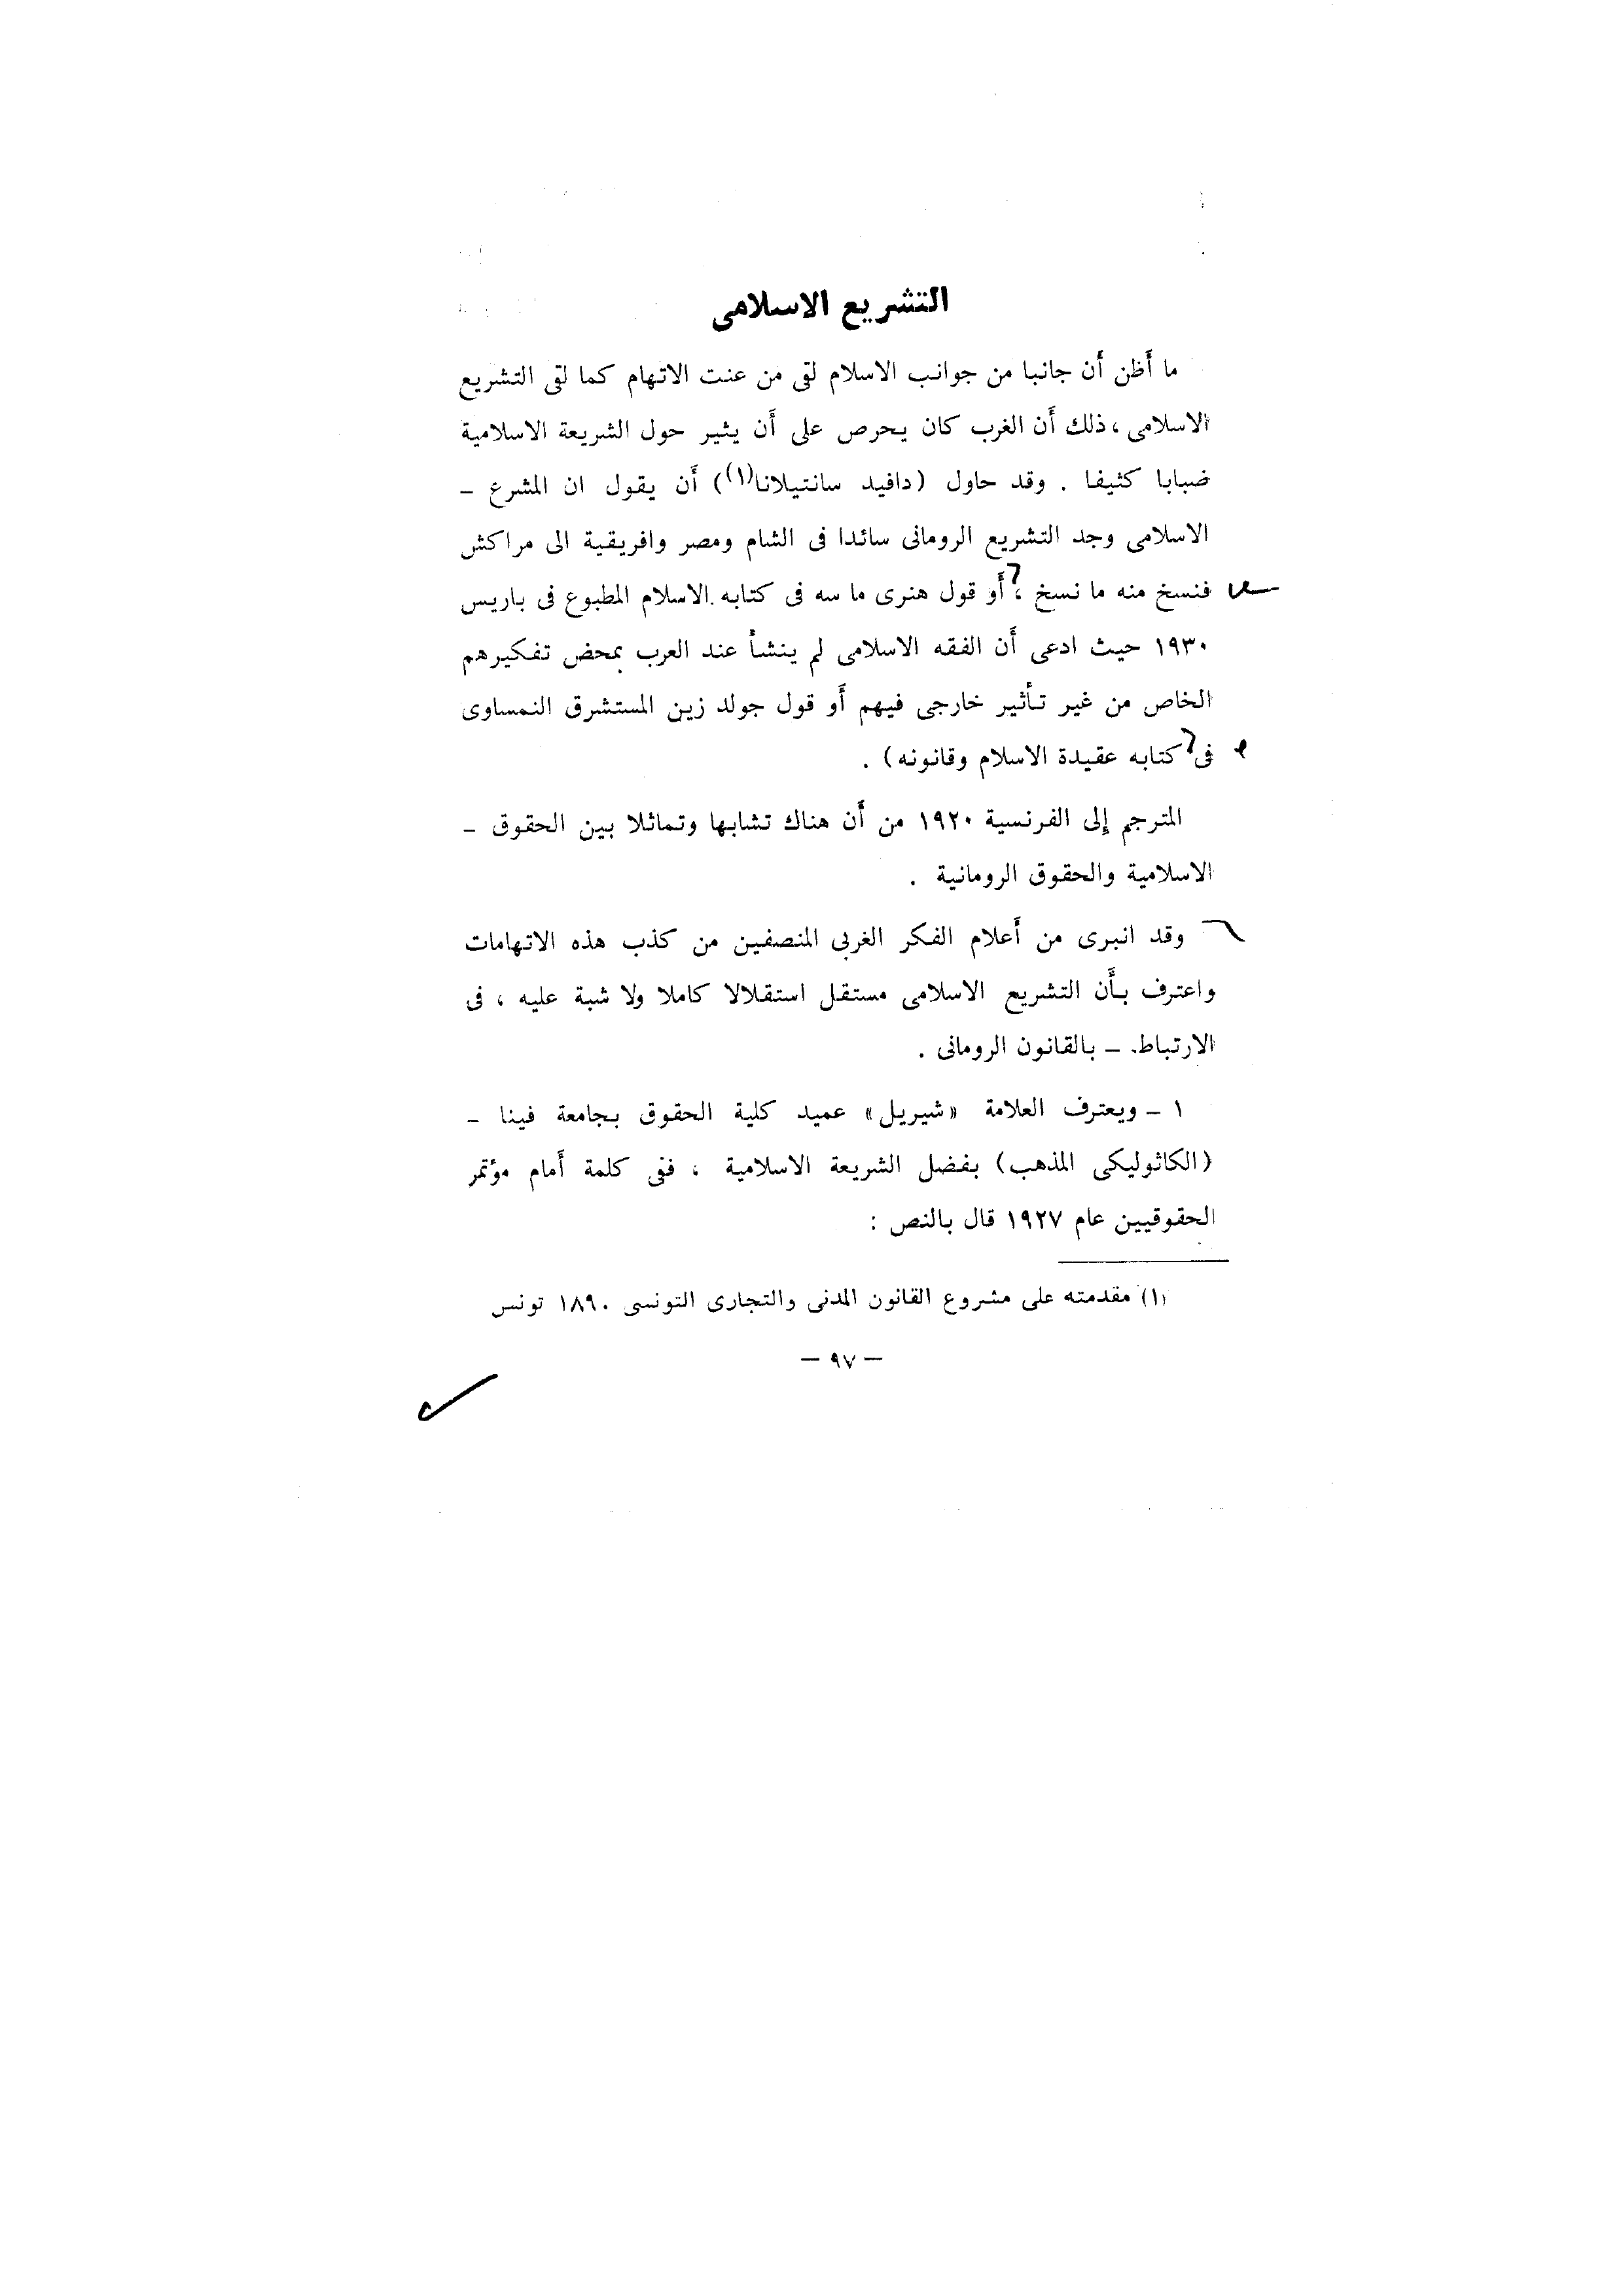 التشريع الاسلامى
ما أظن أن جانبا من جوانب الاسلام لقى من عنت الاتهام كما لقى التشريع
الاسلامى ، ذلك أن الغرب كان يحرص على أن يثير حول الشريعة الاسلامية
ضبابا كثيفا . وقد حاول (دافيد سانتيلانا(١)) أن يقول ان المشرع –
الاسلامى وجد التشريع الرومانى سائدا فى الشام ومصر وافريقية الى مراكش
فنسخ منه ما نسخ ، أو قول هنرى ما سه فى كتابه الاسلام المطبوع فى باريس
١٩٣٠ حيث ادعى أن الفقه الاسلامى لم ينشأ عند العرب بمحض تفكيرهم
الخاص من غير تأثير خارجى فيهم أو قول جولد زين المستشرق النمساوى
فى كتابه عقيدة الاسلام وقانونه) .
المترجم إلى الفرنسية ١٩٢٠ من أن هناك تشابها وتماثلا بين الحقوق –
الاسلامية والحقوق الرومانية .
وقد انبرى من أعلام الفكر الغربى المنصفين من كذب هذه الاتهامات
واعترف بأن التشريع الاسلامى مستقل استقلالا كاملا ولا شبة عليه ، فى
الارتباط. – بالقانون الرومانى .
١ – ويعترف العلامة «شيريل» عميد كلية الحقوق بجامعة فينا –
(الكاثوليكى المذهب) بفضل الشريعة الاسلامية ، ففى كلمة أمام مؤتمر
الحقوقيين عام ١٩٢٧ قال بالنص :
(١) مقدمته على مشروع القانون المدنى والتجارى التونسى ١٨٩٠ تونس
– ٩٧ –